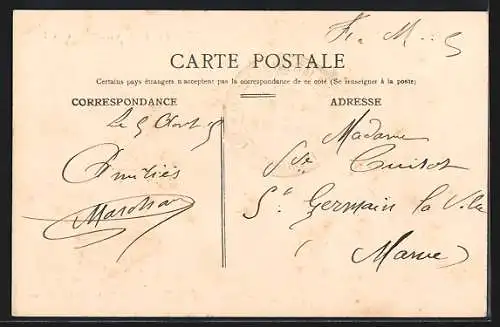 F. M. 
CARTE POSTALE
Certains pays étrangers n'acceptent pas la correspondance de ce côté (Se renseigner à la poste)
CORRESPONDANCE
Le 5
Amitiés
ADRESSE
Madame
Vve
St Germain la Ville
(Marne)